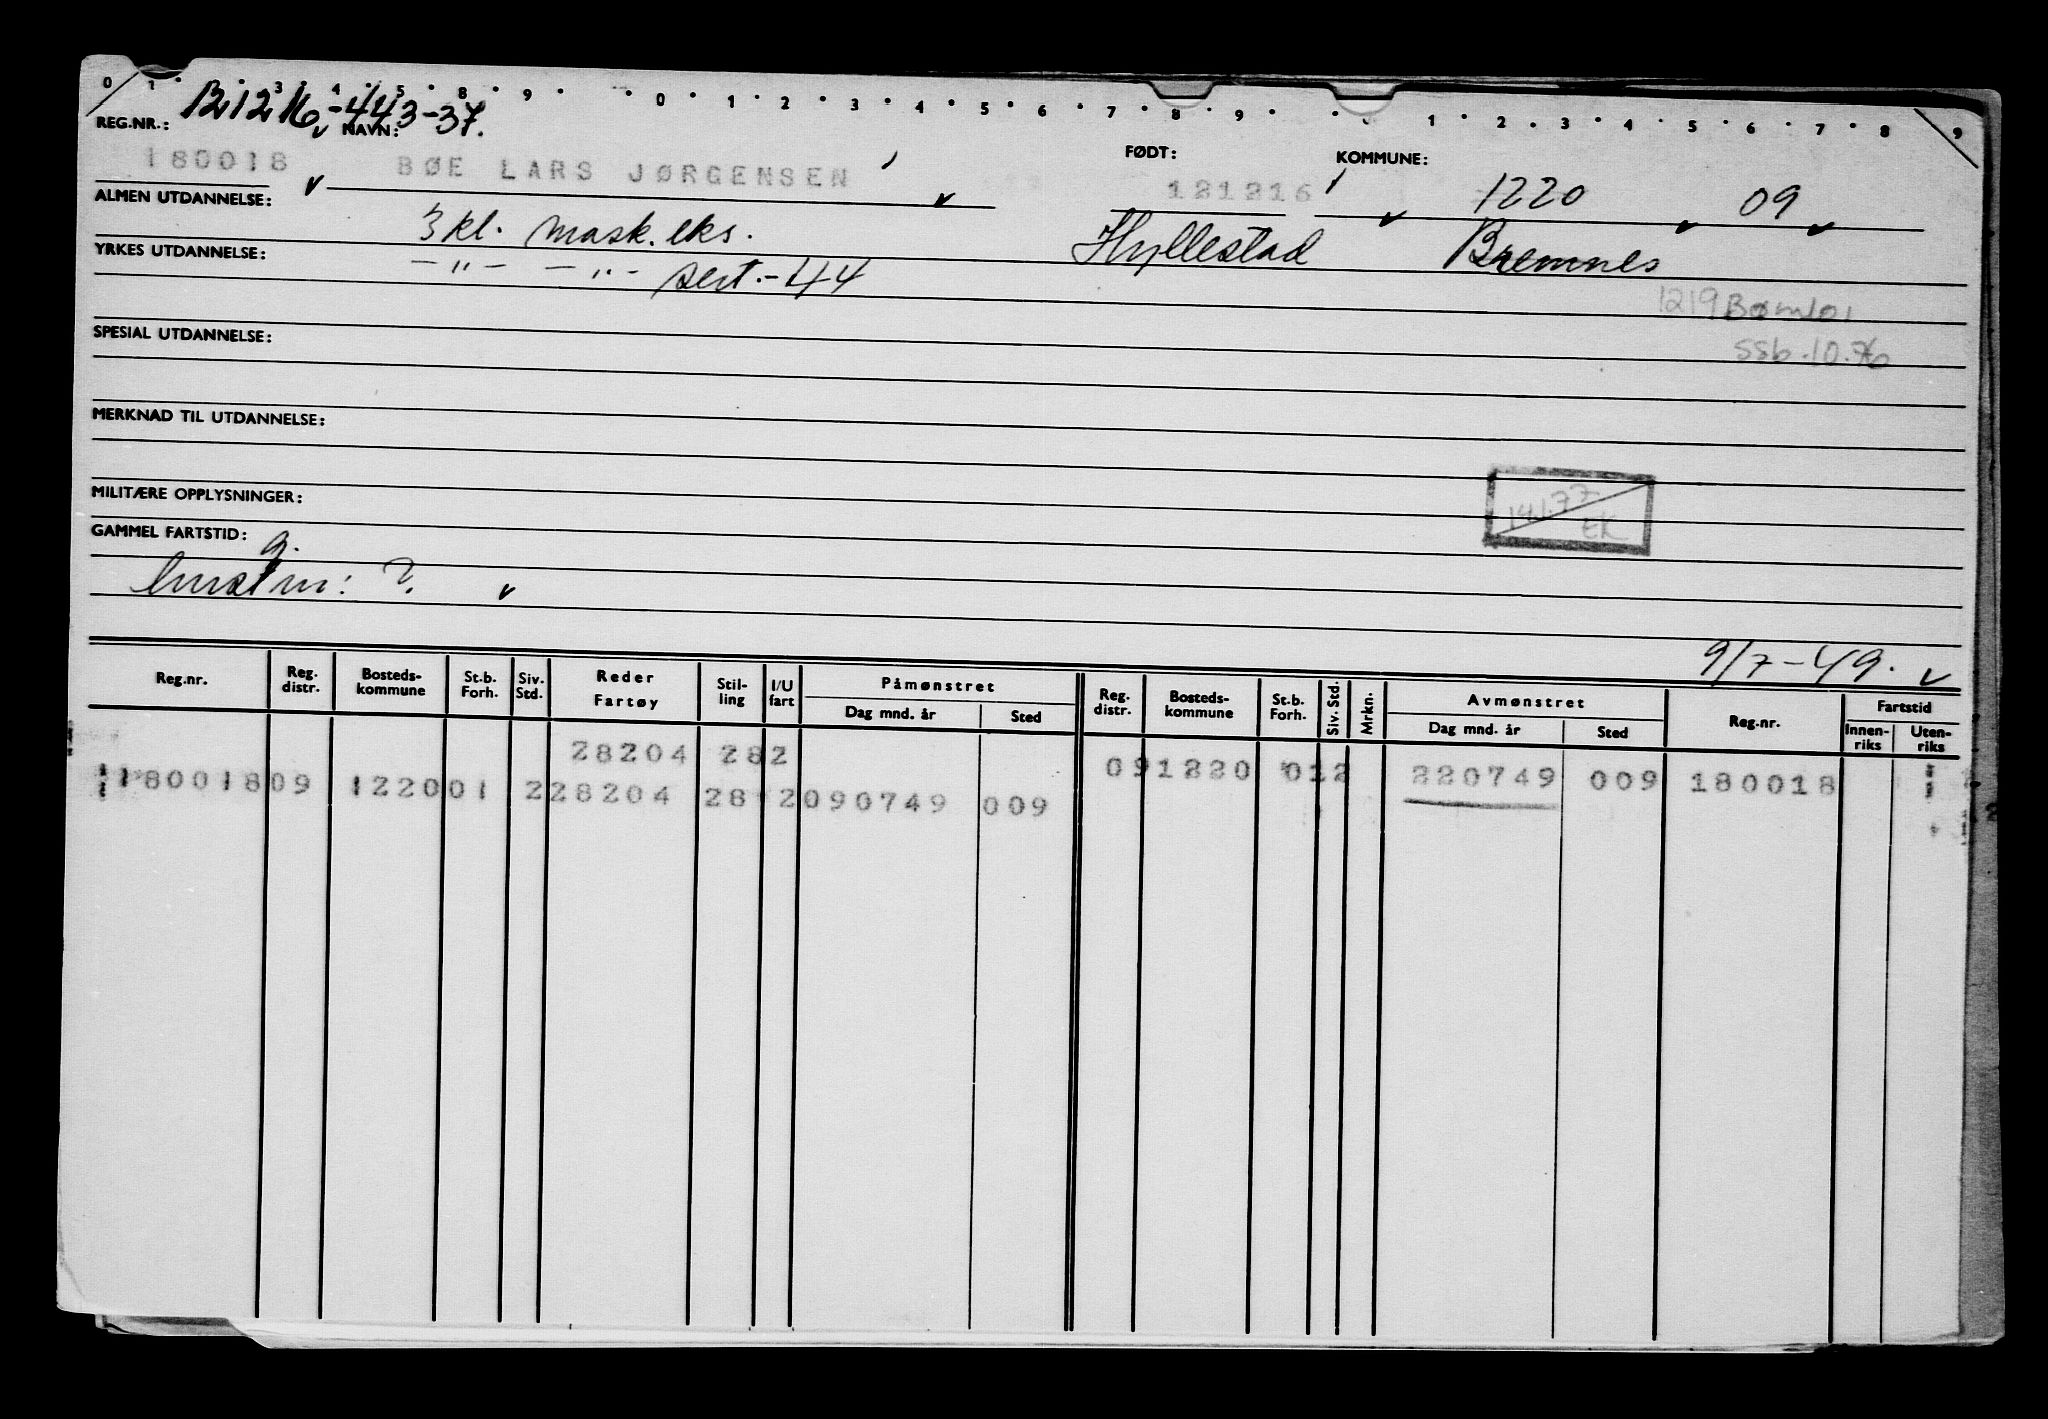 0 1 3 4 5 8 9 0 1 2 3 4 5 6 7 8 9 1 2 3 4 5 6 7 8 9
121216-443-37.
REG.NR.: NAVN: FØDT: KOMMUNE:
180018 BØE LARS JØRGENSEN 121216 1220 09
ALMEN UTDANNELSE: 3 kl. mask. eks. Hyllestad Bremnes
YRKES UTDANNELSE: —"— —"— sert.-44
1219 Bømlo
SSb.10.76
SPESIAL UTDANNELSE:
MERKNAD TIL UTDANNELSE:
MILITÆRE OPPLYSNINGER:
14.1.77
EK
GAMMEL FARTSTID: g.
?
9/7-49.
Reg.nr. Reg. distr. Bosteds-kommune St.b. Forh. Siv. Std. Reder Fartøy Stil-ling I/U fart Påmønstret Dag mnd. år Sted Reg. distr. Bosteds-kommune St.b. Forh. Siv. Std. Mrkn. Avmønstret Dag mnd. år Sted Reg.nr. Fartstid Innen-riks Uten-riks
28204 282
180018 09 1220 01 2 28204 28 2 090749 009 09 1220 01 2 220749 009 180018